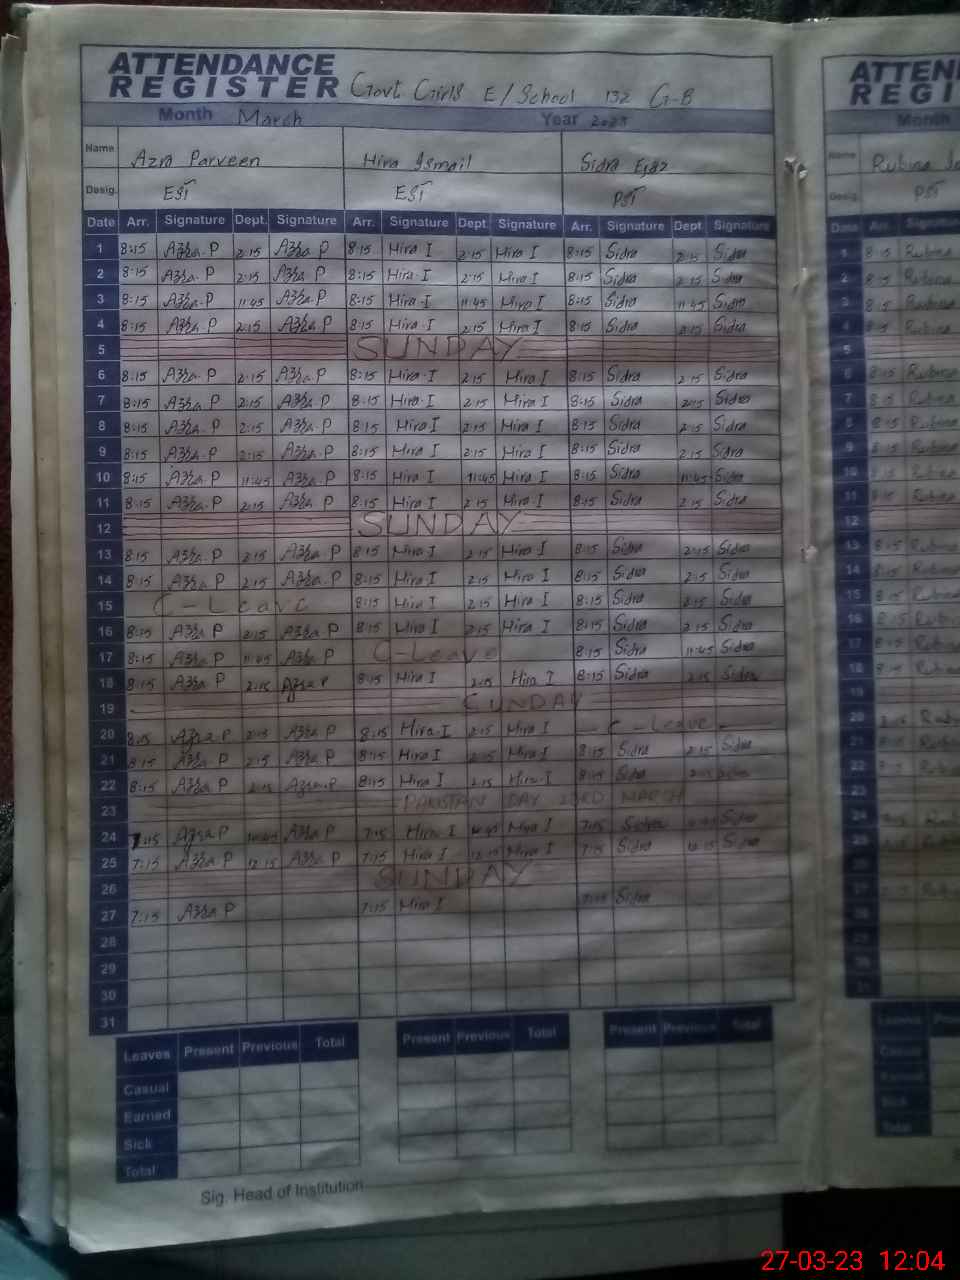 ATTENDANCE
REGISTER Govt Girls E/School 132 G-B
Month March Year 2023
Name Azra Parveen Hira Ismail Sidra
Desig. EST EST PST
Date Arr. Signature Dept. Signature Arr. Signature Dept Signature Arr. Signature Dept Signature
1 8:15 Azra.P 2:15 Azra P 8:15 Hira I 2:15 Hira I 8:15 Sidra 2:15 Sidra
2 8:15 Azra.P 2:15 Azra P 8:15 Hira I 2:15 Hira I 8:15 Sidra 2:15 Sidra
3 8:15 Azra.P 11:45 Azra P 8:15 Hira I 11:45 Hira I 8:15 Sidra 11:45 Sidra
4 8:15 Azra.P 2:15 Azra P 8:15 Hira I 2:15 Hira I 8:15 Sidra 2:15 Sidra
5 SUNDAY
6 8:15 Azra P 2:15 Azra P 8:15 Hira I 2:15 Hira I 8:15 Sidra 2:15 Sidra
7 8:15 Azra P 2:15 Azra P 8:15 Hira I 2:15 Hira I 8:15 Sidra 2:15 Sidra
8 8:15 Azra P 2:15 Azra P 8:15 Hira I 2:15 Hira I 8:15 Sidra 2:15 Sidra
9 8:15 Azra P 2:15 Azra P 8:15 Hira I 2:15 Hira I 8:15 Sidra 2:15 Sidra
10 8:15 Azra P 11:45 Azra P 8:15 Hira I 11:45 Hira I 8:15 Sidra 11:45 Sidra
11 8:15 Azra P 2:15 Azra P 8:15 Hira I 2:15 Hira I 8:15 Sidra 2:15 Sidra
12 SUNDAY
13 8:15 Azra.P 2:15 Azra P 8:15 Hira I 2:15 Hira I 8:15 Sidra 2:15 Sidra
14 8:15 Azra P 2:15 Azra P 8:15 Hira I 2:15 Hira I 8:15 Sidra 2:15 Sidra
15 C-Leave 8:15 Hira I 2:15 Hira I 8:15 Sidra 2:15 Sidra
16 8:15 Azra P 2:15 Azra P 8:15 Hira I 2:15 Hira I 8:15 Sidra 2:15 Sidra
17 8:15 Azra P 11:45 Azra P C-Leave 8:15 Sidra 11:45 Sidra
18 8:15 Azra P 2:15 Azra P 8:15 Hira I 2:15 Hira I 8:15 Sidra 2:15 Sidra
19 SUNDAY
20 8:15 Azra P 2:15 Azra P 8:15 Hira I 2:15 Hira I C-Leave
21 8:15 Azra P 2:15 Azra P 8:15 Hira I 2:15 Hira I 8:15 Sidra 2:15 Sidra
22 8:15 Azra P 2:15 Azra P 8:15 Hira I 2:15 Hira I 8:15 Sidra 2:15 Sidra
23 PAKISTAN DAY 23RD MARCH
24 7:15 Azra P Azra P 7:15 Hira I Hira I 7:15 Sidra Sidra
25 7:15 Azra P 12:15 Azra P 7:15 Hira I 12:15 Hira I 7:15 Sidra 12:15 Sidra
26 SUNDAY
27 7:15 Azra P 7:15 Hira I 7:15 Sidra
28
29
30
31
Leaves Present Previous Total Present Previous Total Present Previous Total
Casual
Earned
Sick
Total
Sig. Head of Institution
ATTEN
REGI
Month
Name Rubina
Desig. PST
Date Arr. Signatur
27-03-23 12:04